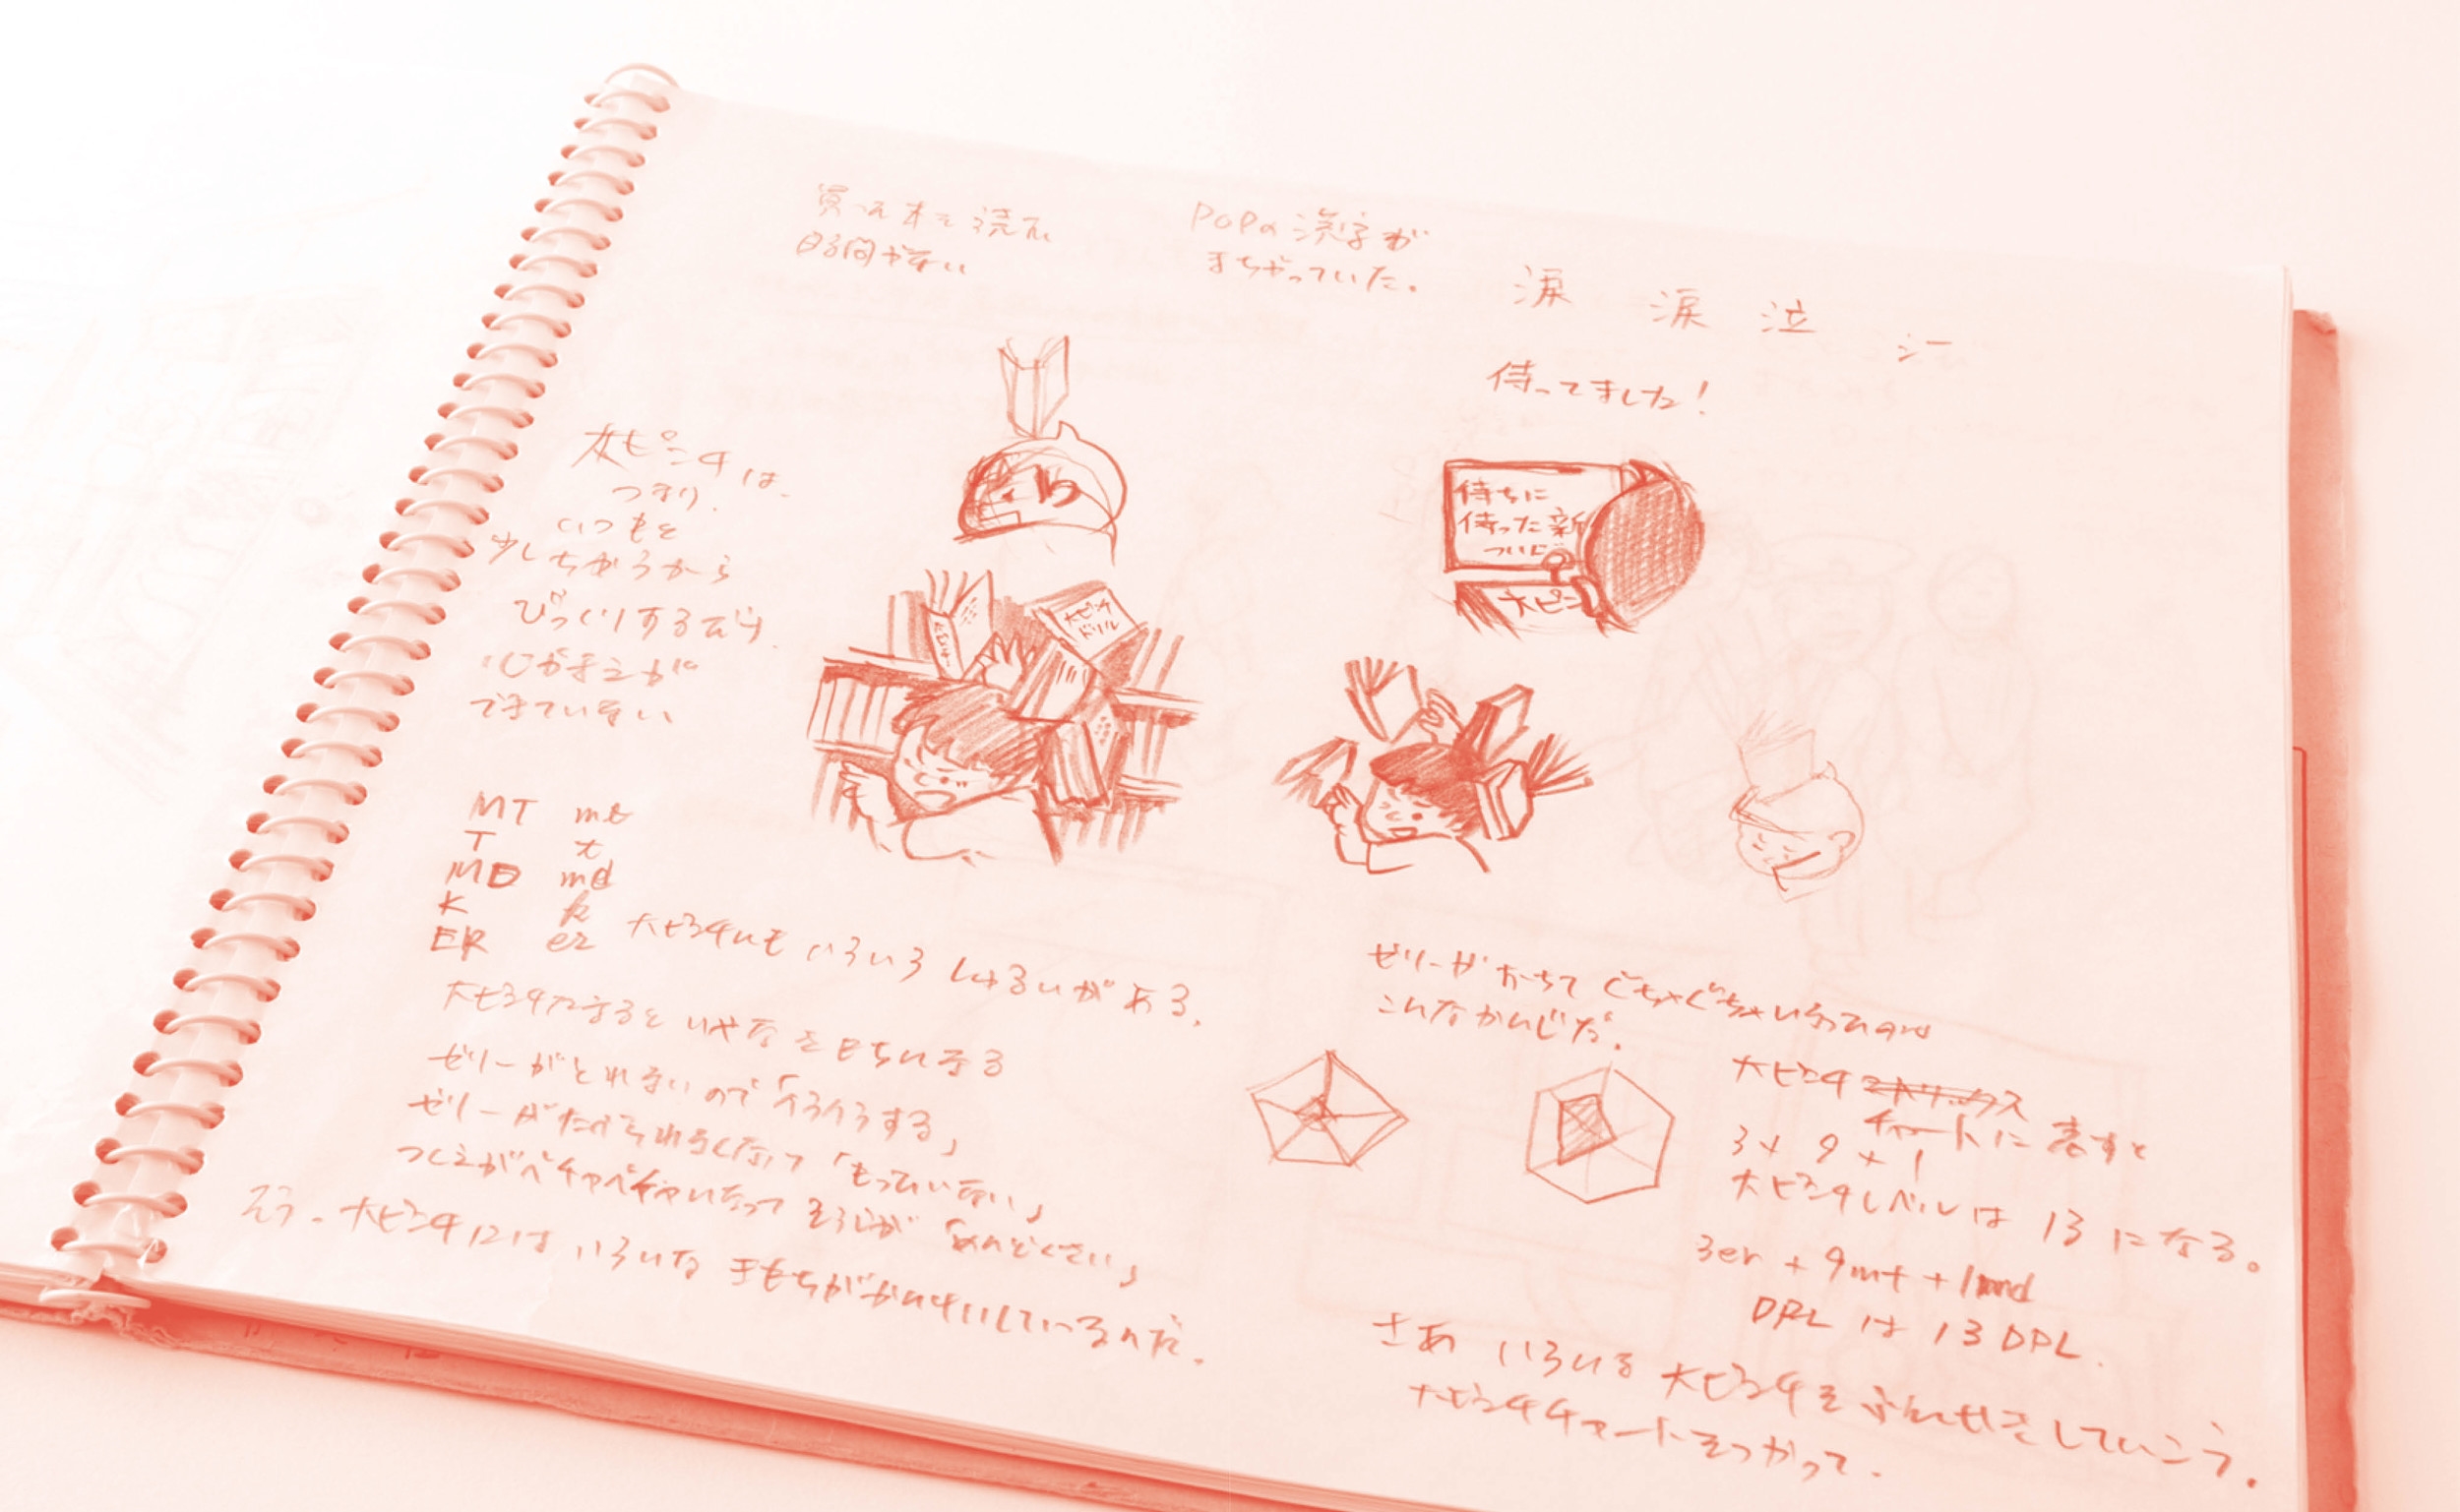 買った本を読む
時間がない
POPの漢字が
まちがっていた。
涙 涙 泣 シー
待ってました！
大ピンチは、
つまり、
いつもと
少しちがうから
びっくりするだけ。
心がまえが
できていない
待ちに
待った新
ついに
大ピン
大ピンチ
ドリル
MT mt
T t
MD md
K k
ER er
大ピンチにも いろいろ しゅるいがある。
大ピンチになると いやな きもちになる
ゼリーがとれないので「イライラする」
ゼリーがたべられなくなって「もったいない」
つくえがベチャベチャになって そうじが「めんどくさい」
そう、大ピンチには いろいろな きもちが かんけいしているのだ。
ゼリーがおちて ぐちゃぐちゃになったのは
こんなかんじだ。
大ピンチ
チャートに 表すと
3 + 9 + 1
大ピンチレベルは 13 になる。
3er + 9mt + 1md
DPL は 13 DPL.
さあ いろいろな 大ピンチを ぶんせきしていこう。
大ピンチチャートをつかって。